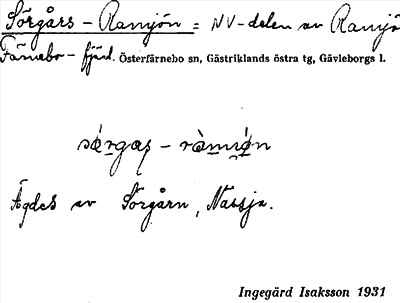 Sörgårs-Ramjön = NV-delen av Ramjö
Färnebo-fjärd. Österfärnebo sn, Gästriklands östra tg, Gävleborgs l.
Ägdes av Sörgårn, Nässja.
Ingegärd Isaksson 1931